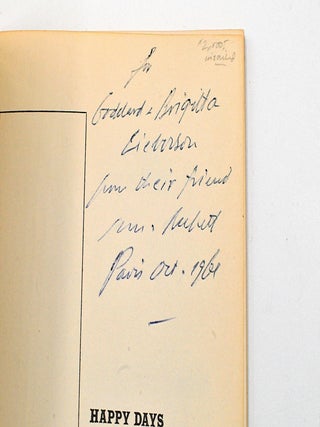 $2,000
inscribed
for
Goddard & Brigitta
Lieberson
from their friend
Sam. Beckett
Paris Oct. 1961
HAPPY DAYS